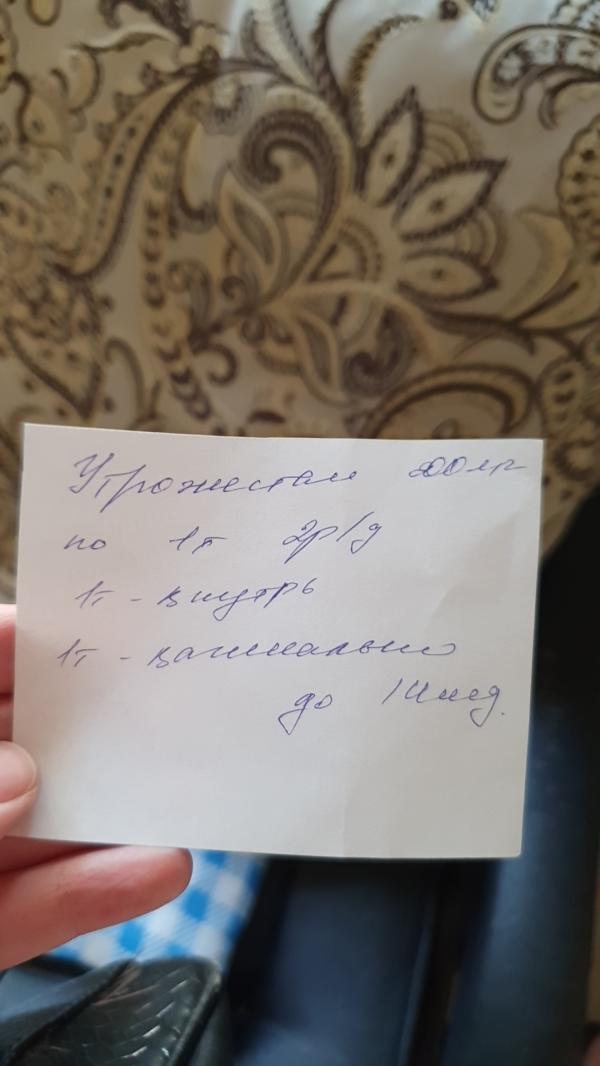 Утрожестан 200мг
по 1т 2р/д
1т - внутрь
1т - вагинально
до 14нед.